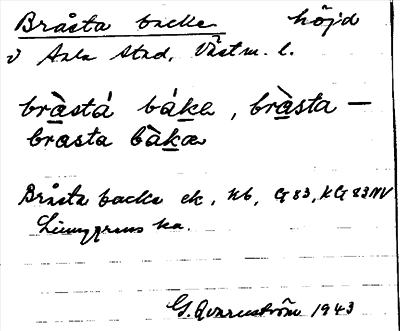 Bråsta backe höjd
v Sala stad, Västm. l.
bràstá báka, bràsta –
brasta bàkæ
Bråsta backe ek, hb, G 83, KG 83 NV
ka.
G. Qvarnström 1943